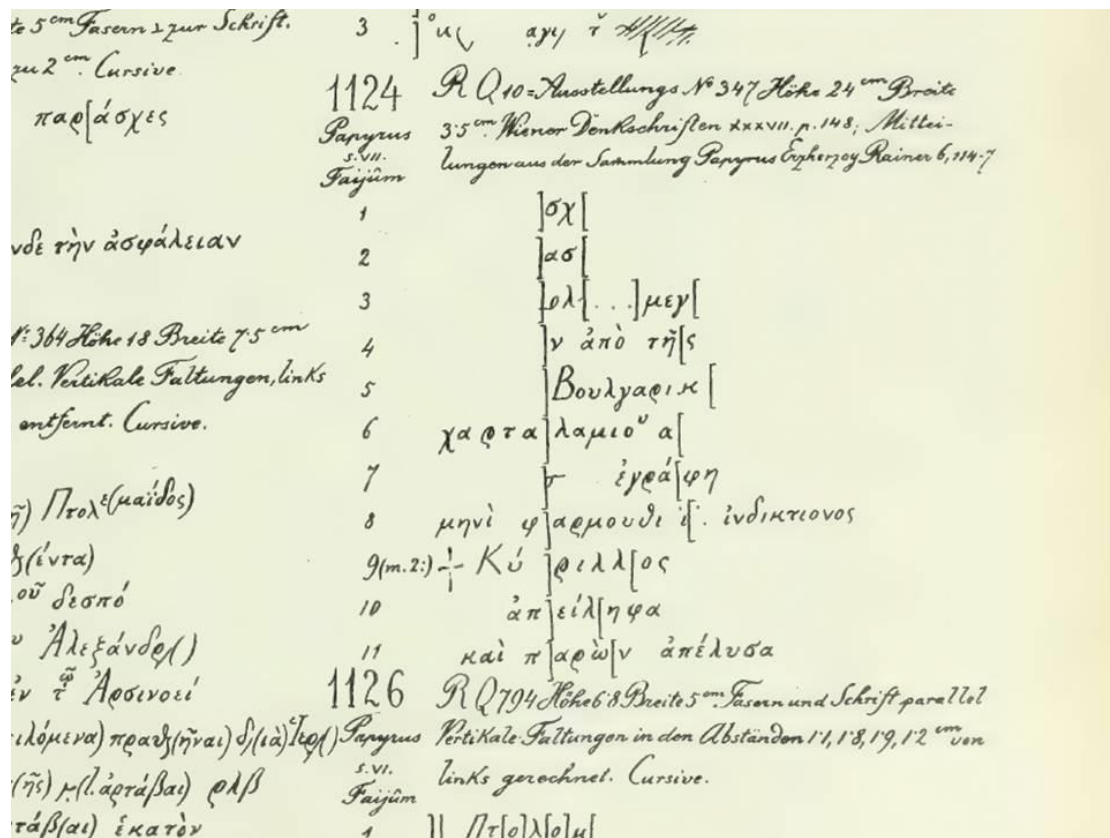 te 5 cm Fasern ⊥ zur Schrift.
zu 2 cm. Cursive.
παρ[άσχες
νδε τὴν ἀσφάλειαν
N: 364 Höhe 18 Breite 7·5 cm
lel. Vertikale Faltungen, links
entfernt. Cursive.
ῆ) Πτολε(μαΐδος)
(έντα)
οῦ δεσπό
υ Ἀλεξάνδρ()
ἐν Ἀρσινοεί
ιλόμενα) πραθ(ῆναι) δ(ιὰ) Ἱερ()
(ῆς) (l. ἀρτάβαι) ρλβ
τάβ(αι) ἑκατὸν
3
1124 R Q 10 = Ausstellungs No 347 Höhe 24 cm Breite
Papyrus 3·5 cm. Wiener Denkschriften XXXVII. p. 148; Mittei-
s. VII. lungen aus der Sammlung Papyrus Erzherzog Rainer 6, 114-7
Faijûm
1 ]σχ[
2 ]ασ[
3 ]ολ[...]μεγ[
4 ]ν ἀπὸ τῆ[ς
5 ]Βουλγαρικ[
6 χαρτα]λαμιου α[
7 ἐγρά[φη
8 μηνὶ φ]αρμουθι ι[. ἰνδικτιονος
9 (m. 2:) + Κύ]ριλλ[ος
10 ἀπ]είλ[ηφα
11 καὶ π]αρὼ[ν ἀπέλυσα
1126 R Q 794 Höhe 6·8 Breite 5 cm. Fasern und Schrift parallel
Papyrus Vertikale Faltungen in den Abständen 1·1, 1·8, 1·9, 1·2 cm von
s. VI. links gerechnet. Cursive.
Faijûm
1 ]] Πτ[ο]λ[ο]μ[